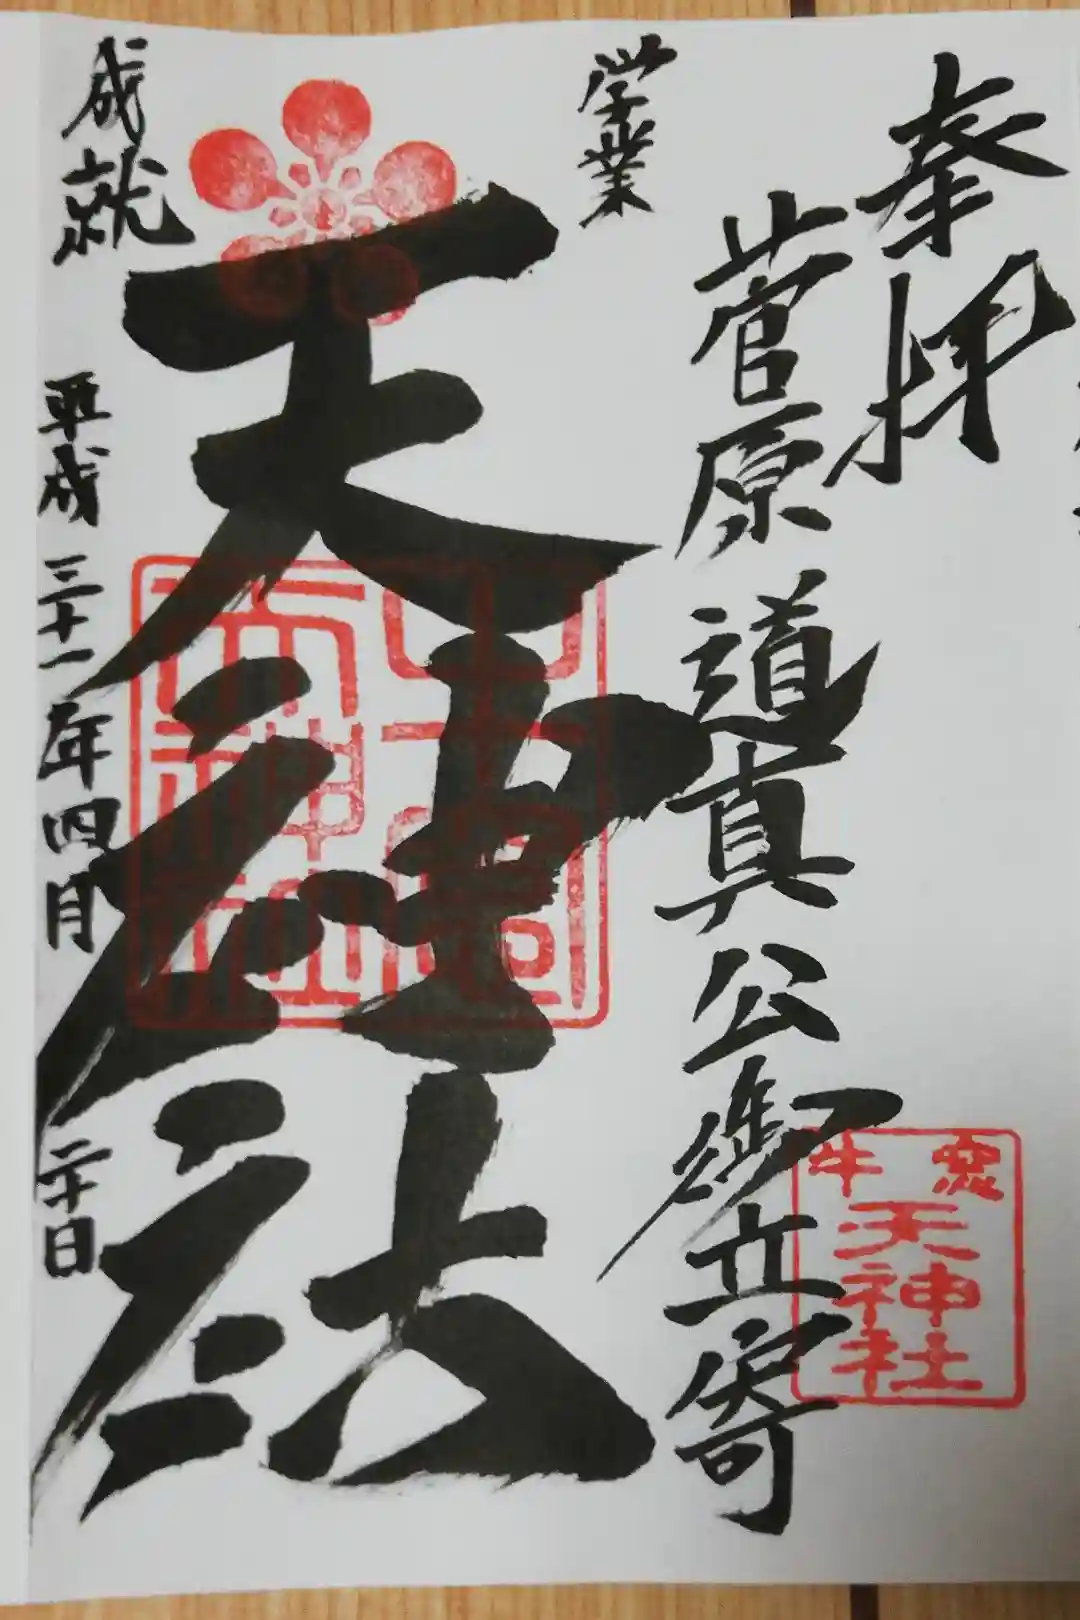 奉拝
菅原道真公御立寄
学業
成就
天神社
平成三十一年四月二十日
牛窓
天神社